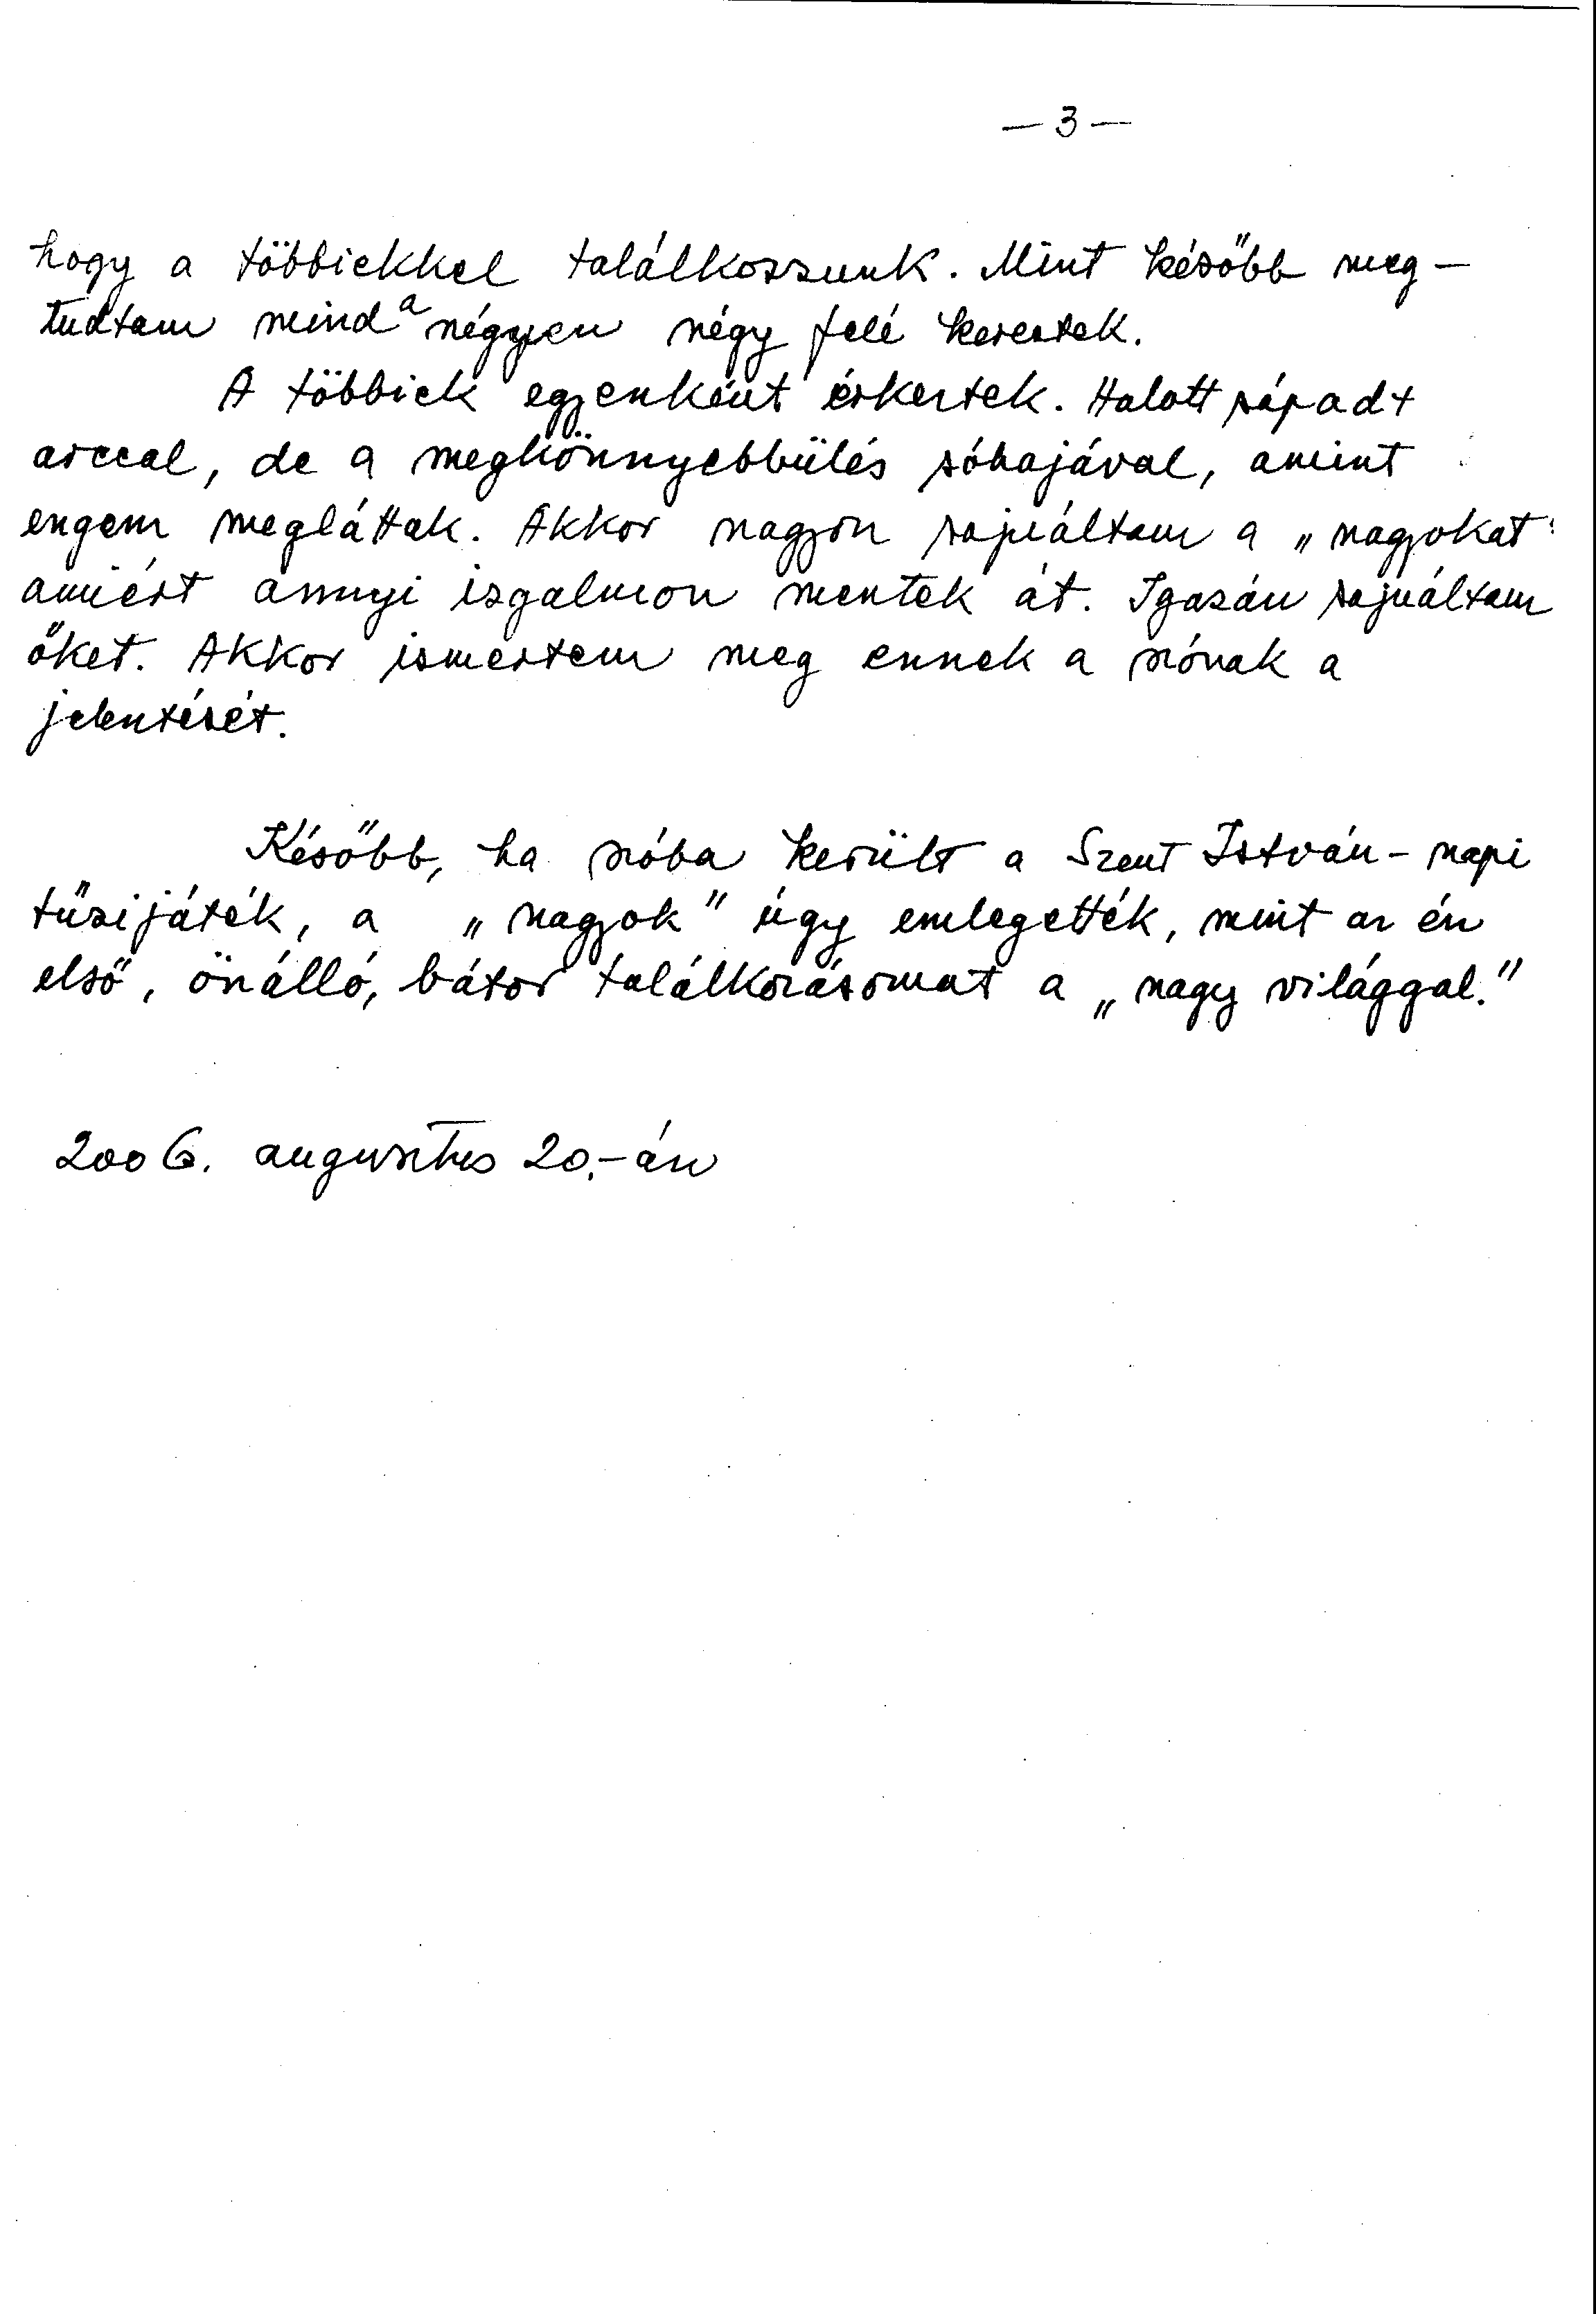 — 3 —
hogy a többiekkel találkozzunk. Mint később meg-
tudtam mind a négyen négy felé kerestek.
A többiek egyenként érkeztek. Halott sápadt
arccal, de a megkönnyebbülés sóhajával, amint
engem megláttak. Akkor nagyon sajnáltam a „nagyokat"
amiért annyi izgalmon mentek át. Igazán sajnáltam
őket. Akkor ismertem meg ennek a szónak a
jelentését.
Később, ha szóba került a Szent István-napi
tűzijáték, a „nagyok" úgy emlegették, mint az én
első, önálló, bátor találkozásomat a „nagy világgal."
2006. augusztus 20.-án